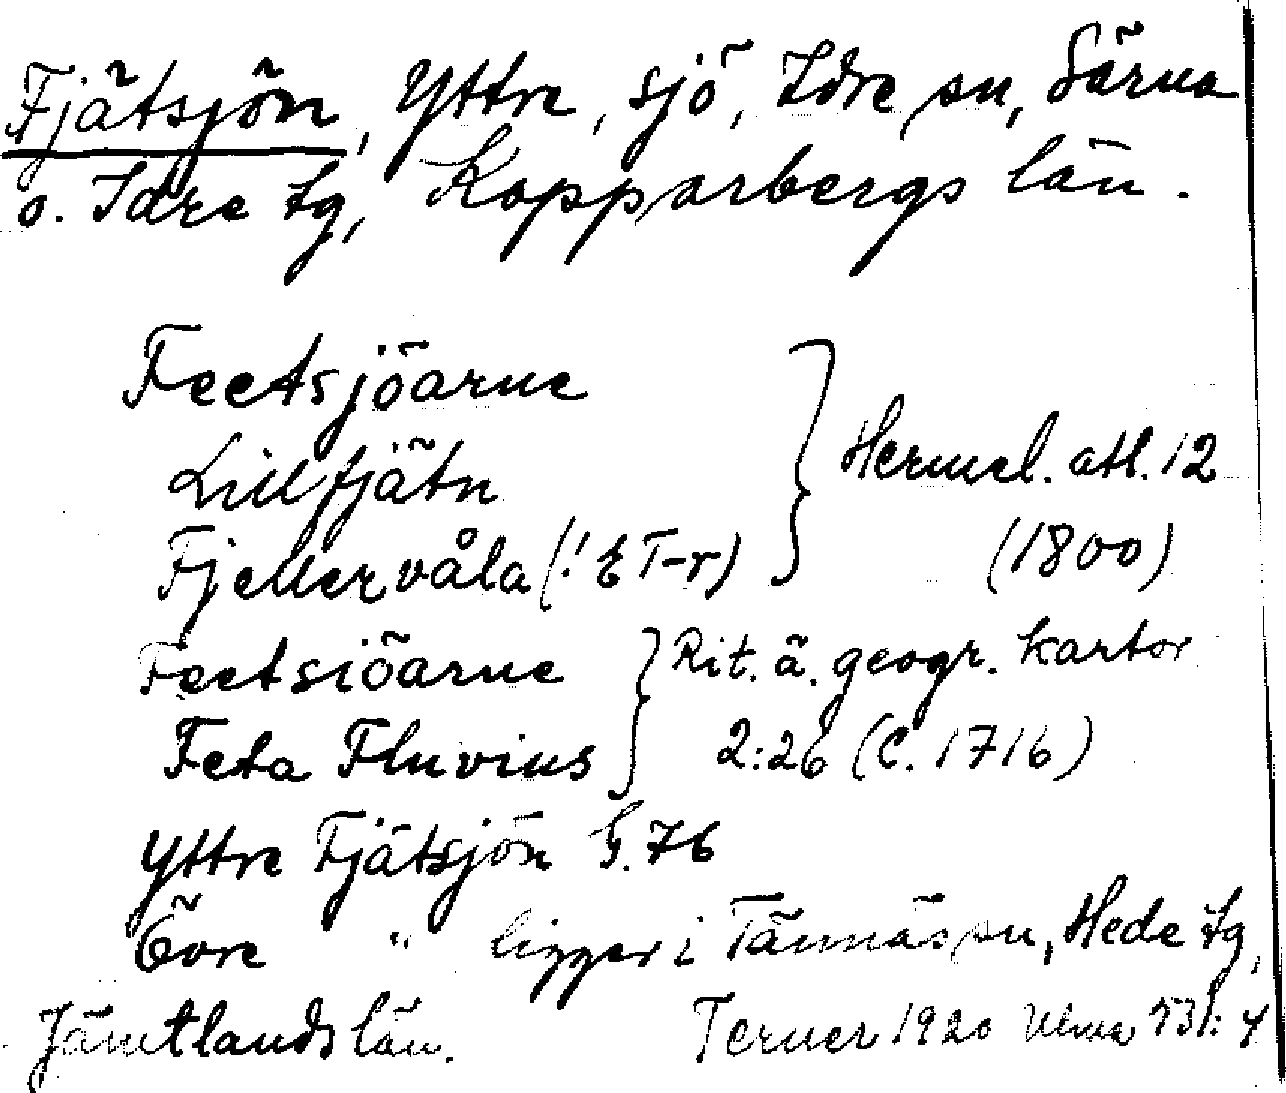 Fjätsjön, Yttre, sjö, Idre sn, Särna
o. Idre tg, Kopparbergs län.
Feetsjöarne
Lill fjätn
Fjellervåla (! E T-r)
} Hermel. atl. 12
(1800)
Feetsiöarne
Feta Fluvius
} Rit. ä. geogr. kartor
2:26 (c. 1716)
Yttre Fjätsjön G. 76
Övre " ligger i Tännäs sn, Hede tg,
Jämtlands län.
Terner 1920 Ulma 531:4